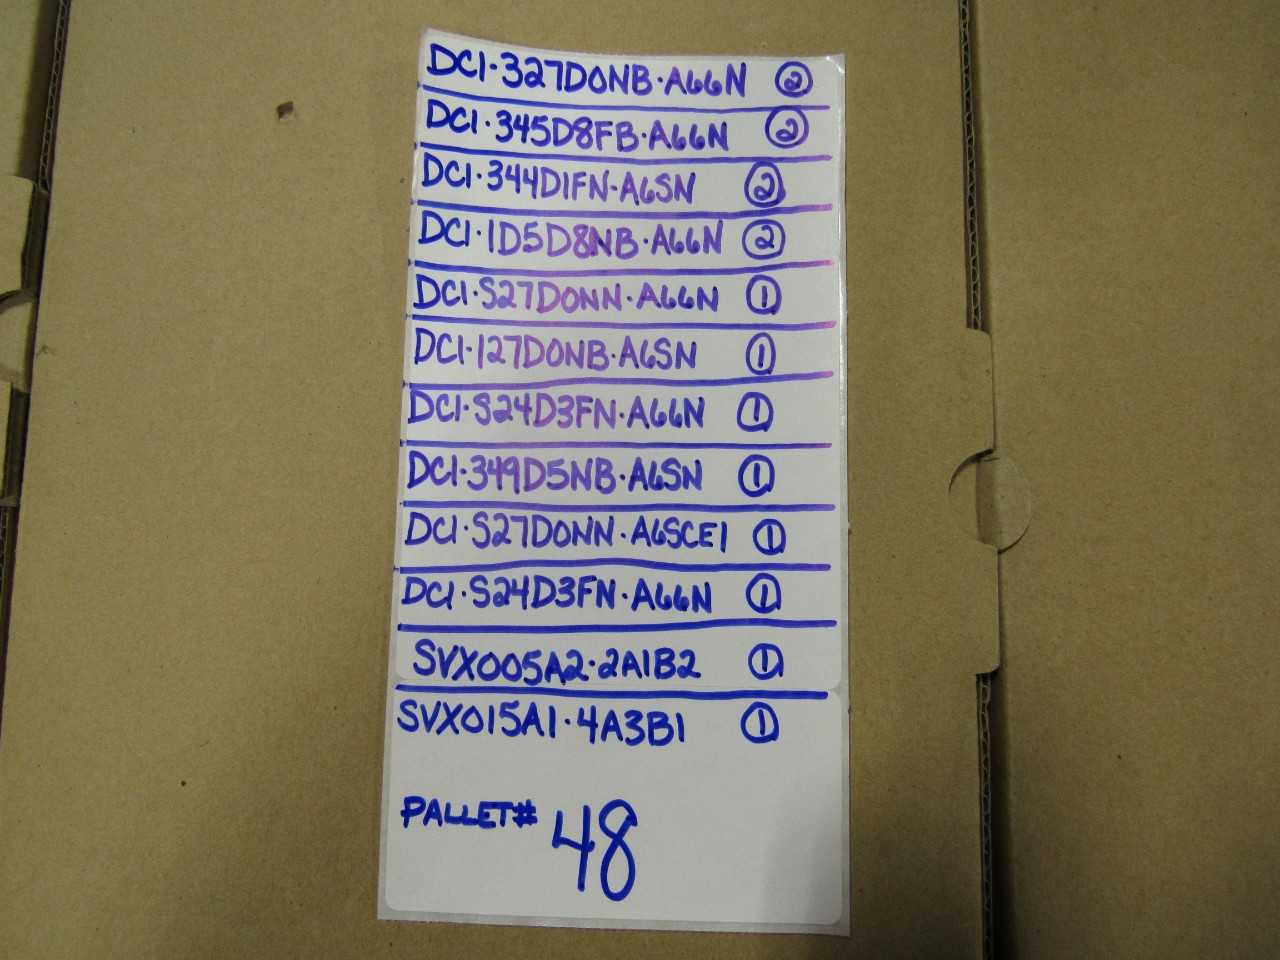 DC1-327DONB-A66N 2
DC1-345D8FB-A66N 2
DC1-344D1FN-A6SN 2
DC1-1D5D8NB-A66N 2
DC1-S27DONN-A66N 1
DC1-127DONB-A6SN 1
DC1-S24D3FN-A66N 1
DC1-349D5NB-A6SN 1
DC1-S27DONN-A6SCE1 1
DC1-S24D3FN-A66N 1
SVX005A2-2A1B2 1
SVX015A1-4A3B1 1
PALLET# 48